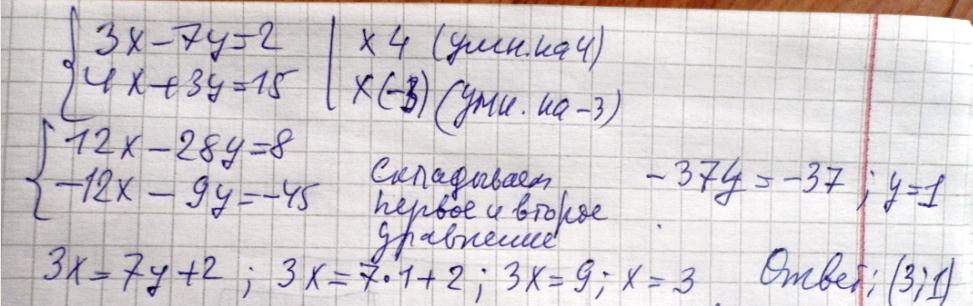 { 3x-7y=2 | x 4 (умн. на 4)
4x+3y=15 | x(-3) (умн. на -3)
{ 12x-28y=8
-12x-9y=-45
Складываем
первое и второе
уравнение
-37y=-37; y=1
3x=7y+2; 3x=7·1+2; 3x=9; x=3. Ответ: (3;1)